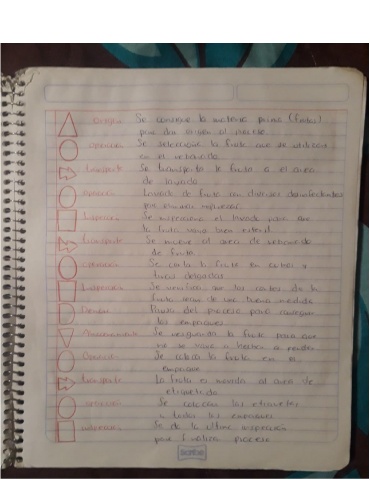 Origen Se consigue la materia prima (frutas)
para dar origen al proceso
operación Se selecciona la fruta que se utilizara
en el rebanado
transporte Se transporta la fruta a el area
de lavado
operación Lavado de fruta con diversos desinfectantes
para eliminar
Inspección Se inspecciona el lavado para que
la fruta vaya bien
transporte Se mueve al area de rebanado
de fruta
operación Se corta la fruta en cubos y
tiras delgadas
Inspección Se verifica que los cortes de la
fruta sean de una buena medida
Demora Pausa del proceso para conseguir
los empaques
Almacenamiento Se resguarda la fruta para que
no se vaya a hechar a perder
Operación Se coloca la fruta en el
empaque
transporte La fruta es movida al area de
etiquetado
operación Se colocan las etiquetas
a todos los empaques
inspección Se da la ultima inspección
para finalizar proceso
scribe